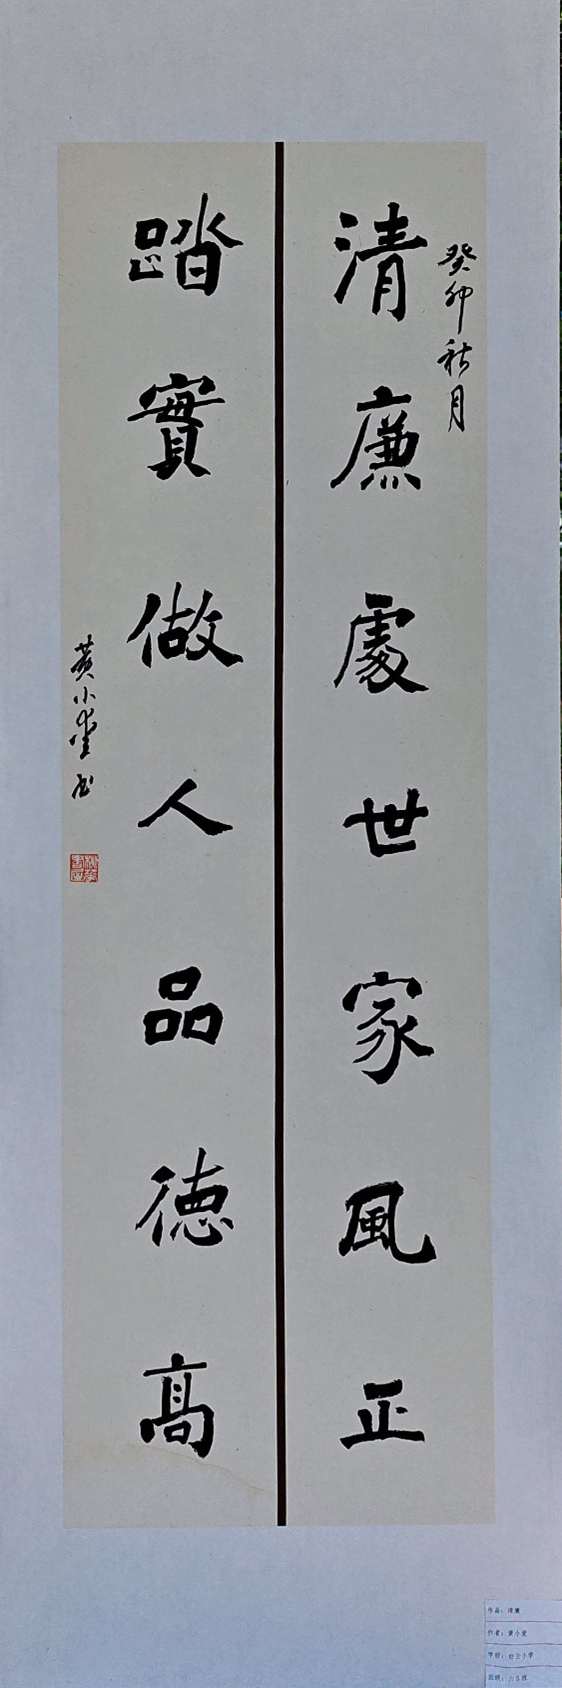 癸卯秋月
清廉處世家風正
踏實做人品德高
黄小愛书
作品：清廉
作者：黄小爱
学校：白云小学
班级：六5班